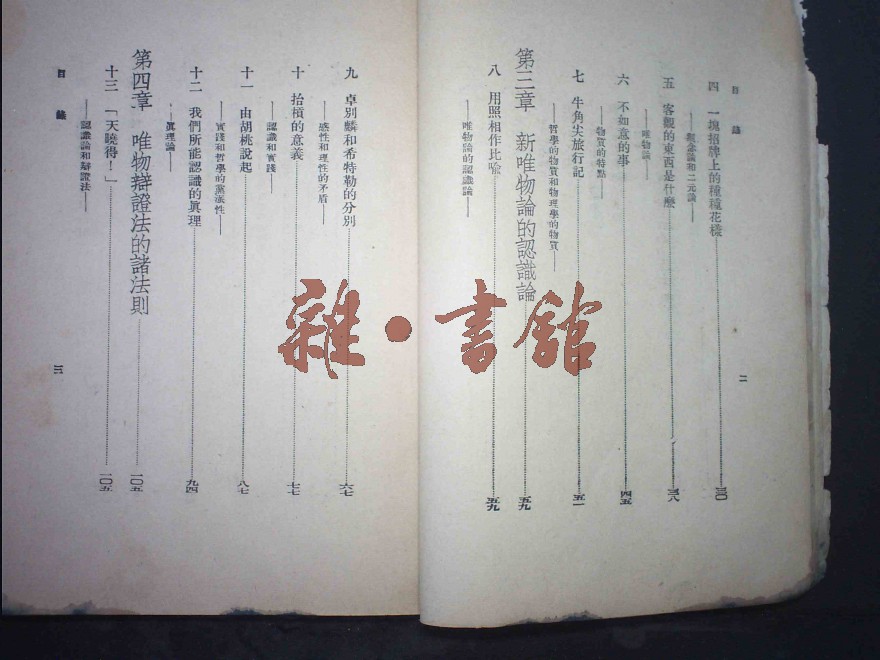 目錄
二
四 一塊招牌上的種種花樣 三〇
——觀念論和二元論——
五 客觀的東西是什麼 三八
——唯物論——
六 不如意的事 四五
——物質的特點——
七 牛角尖旅行記 五一
——哲學的物質和物理學的物質——
第三章 新唯物論的認識論 五九
八 用照相作比喻 五九
——唯物論的認識論——
九 卓別麟和希特勒的分別 六七
——感性和理性的矛盾——
十 抬槓的意義 七七
——認識和實踐——
十一 由胡桃說起 八七
——實踐和哲學的黨派性——
十二 我們所能認識的眞理 九四
——眞理論——
第四章 唯物辯證法的諸法則 一〇五
十三 「天曉得！」 一〇五
——認識論和辯證法——
目錄
三
雜·書館